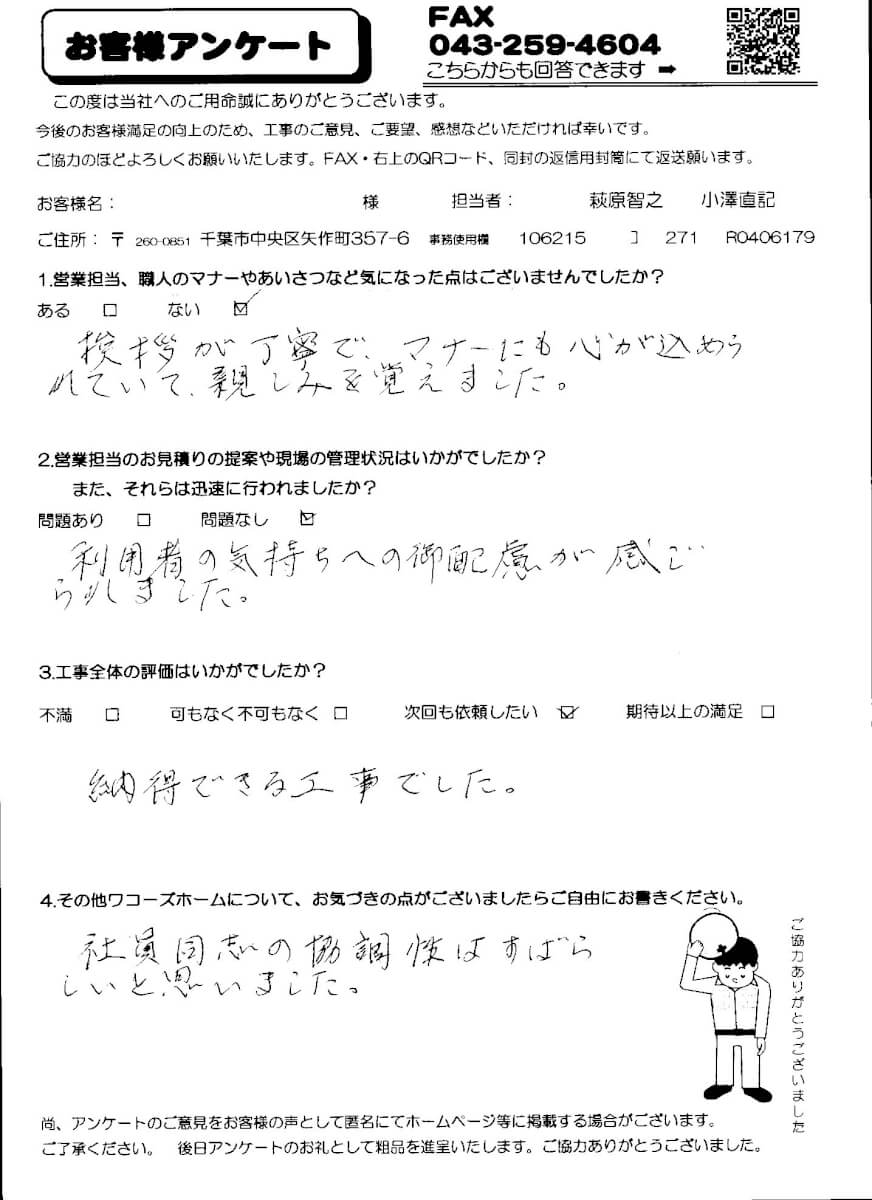 お客様アンケート
FAX
043-259-4604
こちらからも回答できます ➡
この度は当社へのご用命誠にありがとうございます。
今後のお客様満足の向上のため、工事のご意見、ご要望、感想などいただければ幸いです。
ご協力のほどよろしくお願いいたします。FAX・右上のQRコード、同封の返信用封筒にて返送願います。
お客様名： 様 担当者： 萩原智之 小澤直記
ご住所：〒 260-0851 千葉市中央区矢作町357-6 事務使用欄 106215 】 271 R0406179
1.営業担当、職人のマナーやあいさつなど気になった点はございませんでしたか？
ある □ ない ☑
挨拶が丁寧で、マナーにも心が込めら
れていて、親しみを覚えました。
2.営業担当のお見積りの提案や現場の管理状況はいかがでしたか？
また、それらは迅速に行われましたか？
問題あり □ 問題なし ☑
利用者の気持ちへの御配慮が感じ
られました。
3.工事全体の評価はいかがでしたか？
不満 □ 可もなく不可もなく □ 次回も依頼したい ☑ 期待以上の満足 □
納得できる工事でした。
4.その他ワコーズホームについて、お気づきの点がございましたらご自由にお書きください。
社員同志の協調性はすばら
しいと思いました。
ご協力ありがとうございました
尚、アンケートのご意見をお客様の声として匿名にてホームページ等に掲載する場合がございます。
ご了承ください。 後日アンケートのお礼として粗品を進呈いたします。ご協力ありがとうございました。